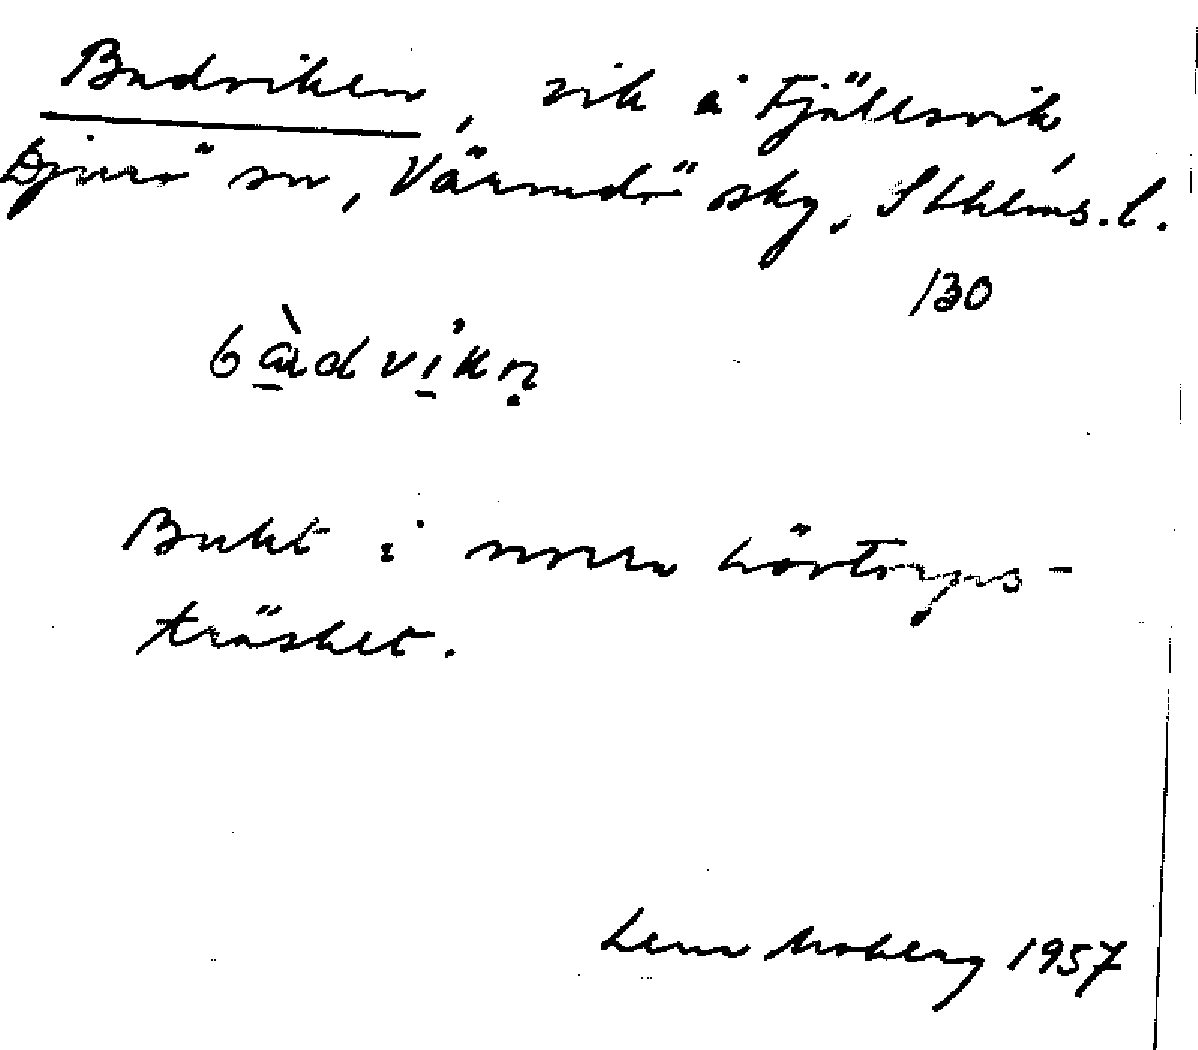 Badviken, vik å Fjällsvik,
Djurö sn, Värmdö skg, Sthlms. l.
130
bàdvikn̥
Bukt i norra Lövtorps-
träsket.
Lena Moberg 1957